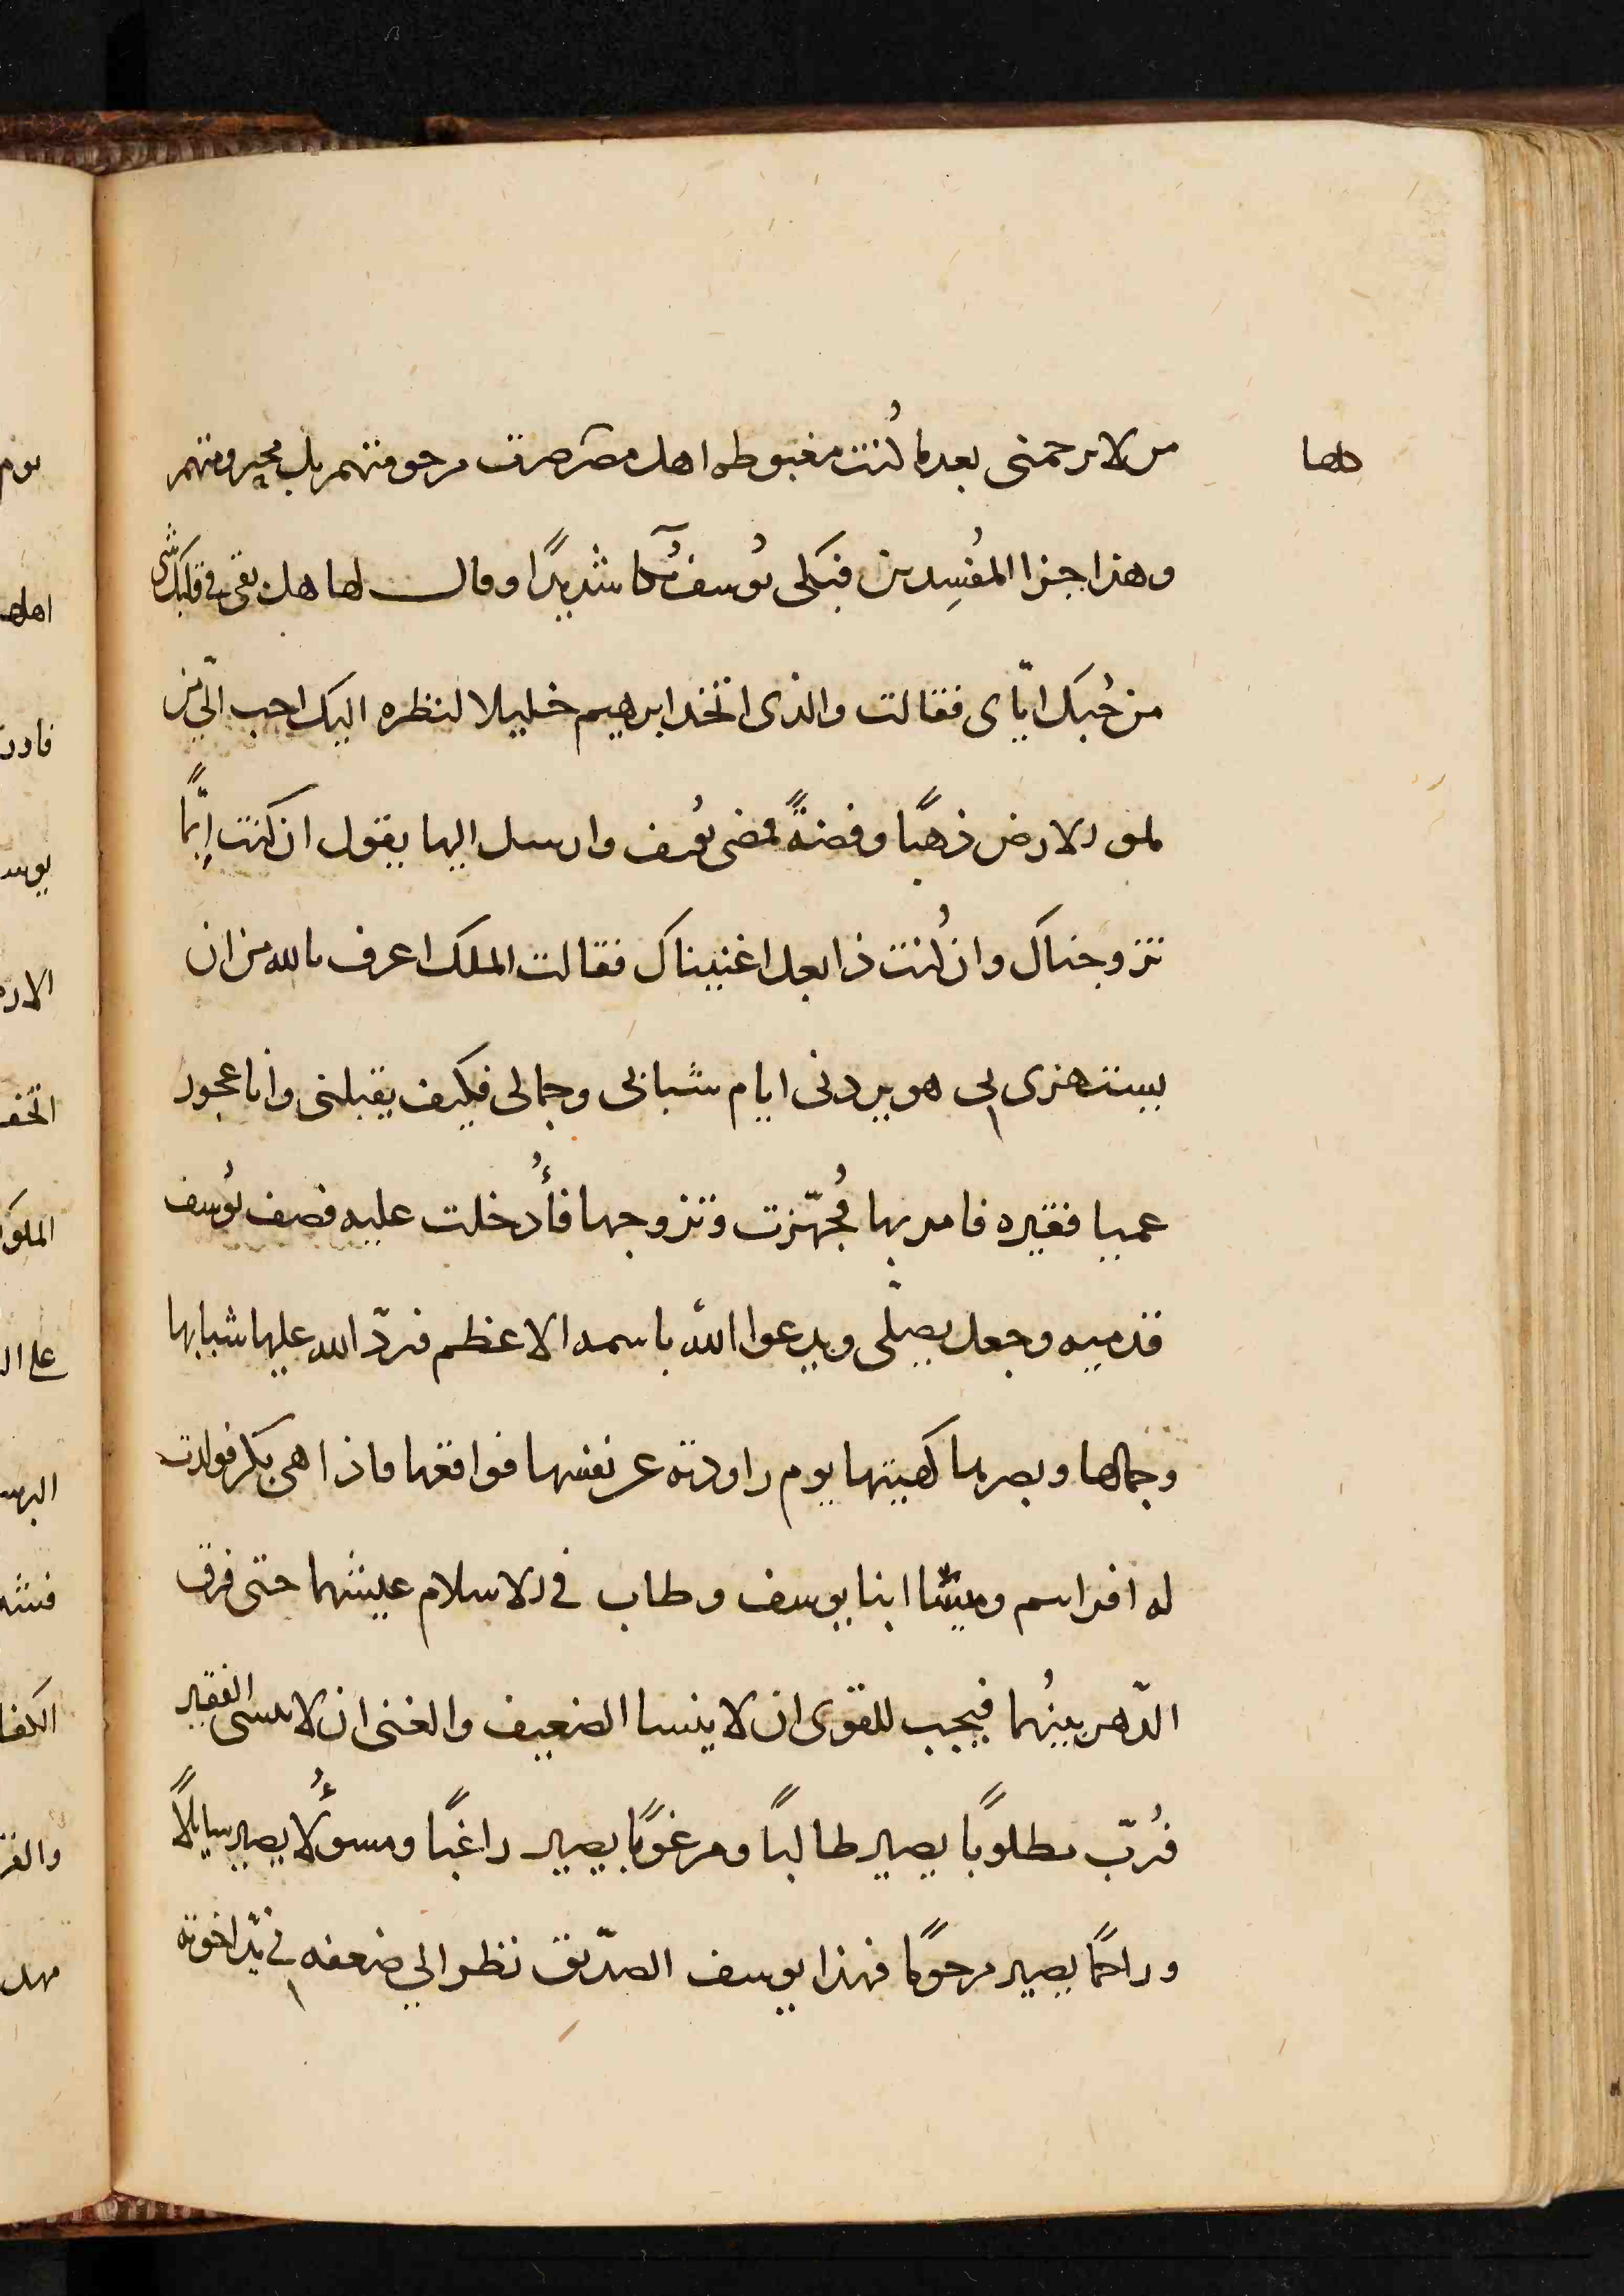 من لا يرحمنى بعد ما كُنت مغبوطه اهل مصر صرت مرحومتهم بل محرومتهم
وهذا جزا المُفسِدين فبكى يُوسف بُكآ شديدًا وقال لها هل بقى فى قلبك شى
من حُبك ايّاى فقالت والذى اتخذ ابرهيم خليلا لنظره اليك احب الىّ من
ملو الارض ذهبًا وفضةً فمضى يوسف وارسل اليها يقول ان كنت ايّمًا
تزوجناك وان كُنت ذا بعل اغنيناك فقالت الملك اعرف بالله من ان
يستهزى بى هو يردنى ايام شبابى وجمالى فكيف يقبلنى وانا عجوز
عميا فقيره فامر بها فجُهّزت وتزوجها فأُدخلت عليه فصف يُوسف
قدميه وجعل يصلّى ويدعوا الله باسمه الاعظم فردّ الله عليها شبابها
وجمالها وبصرها كهيتها يوم راودته عن نفسها فواقعها فاذا هى بكر فولدت
له افراىىم وميشا ابنا يوسف وطاب فى الاسلام عيشهما حتى فرق
الدّهر بينهُما فيجب للقوى ان لا ينسا الضعيف والغنى ان لا ينسى الفقير
فرُبّ مطلوبًا يصير طالبًا ومرغوبًا يصير راغبًا ومسوُلًا يصير سايلًا
وراحمًا يصير مرحومًا فهذا يوسف الصدّيق نظر الى ضعفه فى يد اخوته